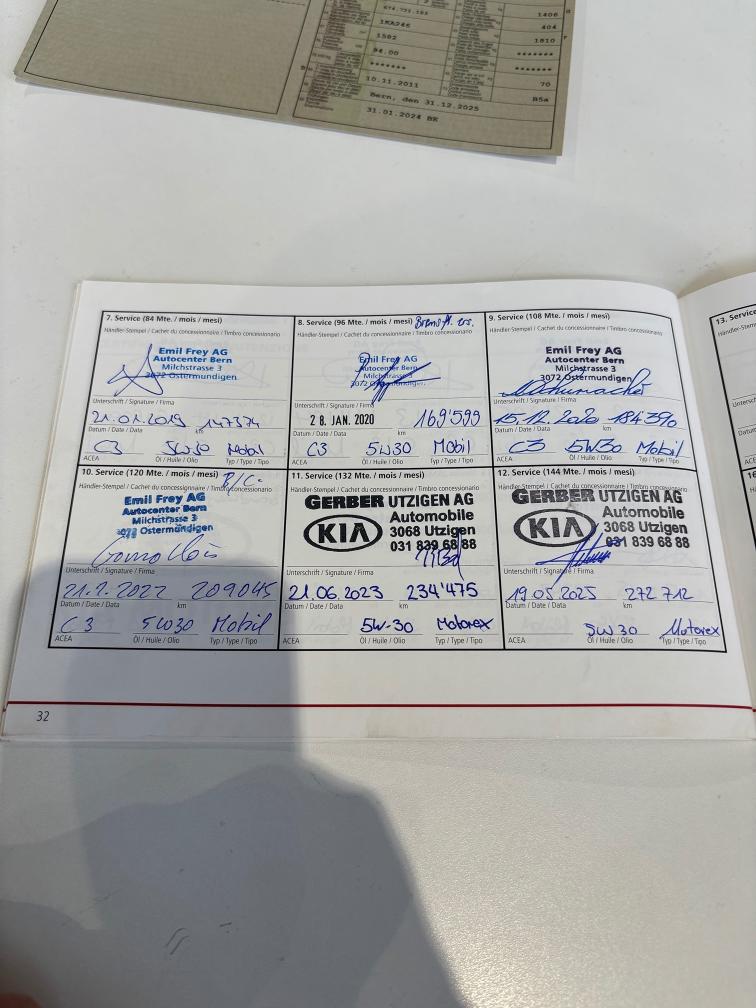 1406
1KA245
404
1582
1810
94.00
*******
*******
*******
70
10.11.2011
B5a
Bern, den 31.12.2025
31.01.2024 BE
7. Service (84 Mte. / mois / mesi)
Händler-Stempel / Cachet du concessionnaire / Timbro concessionario
Emil Frey AG
Autocenter Bern
Milchstrasse 3
3072 Ostermundigen
Unterschrift / Signature / Firma
21.01.2019 147374
Datum / Date / Data km
C3 5W30 Mobil
ACEA Öl / Huile / Olio Typ / Type / Tipo
8. Service (96 Mte. / mois / mesi)
Händler-Stempel / Cachet du concessionnaire / Timbro concessionario
Emil Frey AG
Autocenter Bern
Milchstrasse 3
3072 Ostermundigen
Unterschrift / Signature / Firma
28. JAN. 2020 169'599
Datum / Date / Data km
C3 5W30 Mobil
ACEA Öl / Huile / Olio Typ / Type / Tipo
9. Service (108 Mte. / mois / mesi)
Händler-Stempel / Cachet du concessionnaire / Timbro concessionario
Emil Frey AG
Autocenter Bern
Milchstrasse 3
3072 Ostermundigen
Unterschrift / Signature / Firma
15.12.2020 184390
Datum / Date / Data km
C3 5W30 Mobil
ACEA Öl / Huile / Olio Typ / Type / Tipo
10. Service (120 Mte. / mois / mesi)
Händler-Stempel / Cachet du concessionnaire / Timbro concessionario
Emil Frey AG
Autocenter Bern
Milchstrasse 3
3072 Ostermundigen
Unterschrift / Signature / Firma
21.2.2022 209045
Datum / Date / Data km
C3 5W30 Mobil
ACEA Öl / Huile / Olio Typ / Type / Tipo
11. Service (132 Mte. / mois / mesi)
Händler-Stempel / Cachet du concessionnaire / Timbro concessionario
GERBER UTZIGEN AG
KIA
Automobile
3068 Utzigen
031 839 68 88
Unterschrift / Signature / Firma
21.06.2023 234'475
Datum / Date / Data km
5W-30 Motorex
ACEA Öl / Huile / Olio Typ / Type / Tipo
12. Service (144 Mte. / mois / mesi)
Händler-Stempel / Cachet du concessionnaire / Timbro concessionario
GERBER UTZIGEN AG
KIA
Automobile
3068 Utzigen
031 839 68 88
Unterschrift / Signature / Firma
19.05.2025 272712
Datum / Date / Data km
5W30 Motorex
ACEA Öl / Huile / Olio Typ / Type / Tipo
13. Service
32